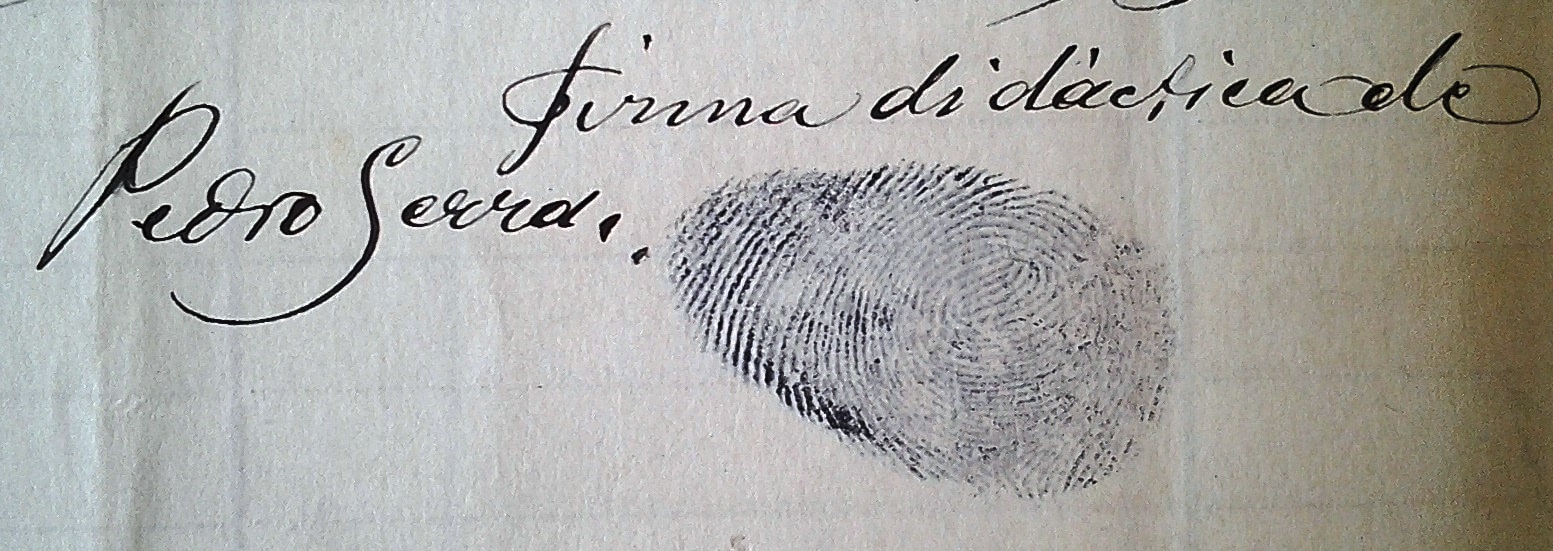 firma didáctica de
Pedro Serra..